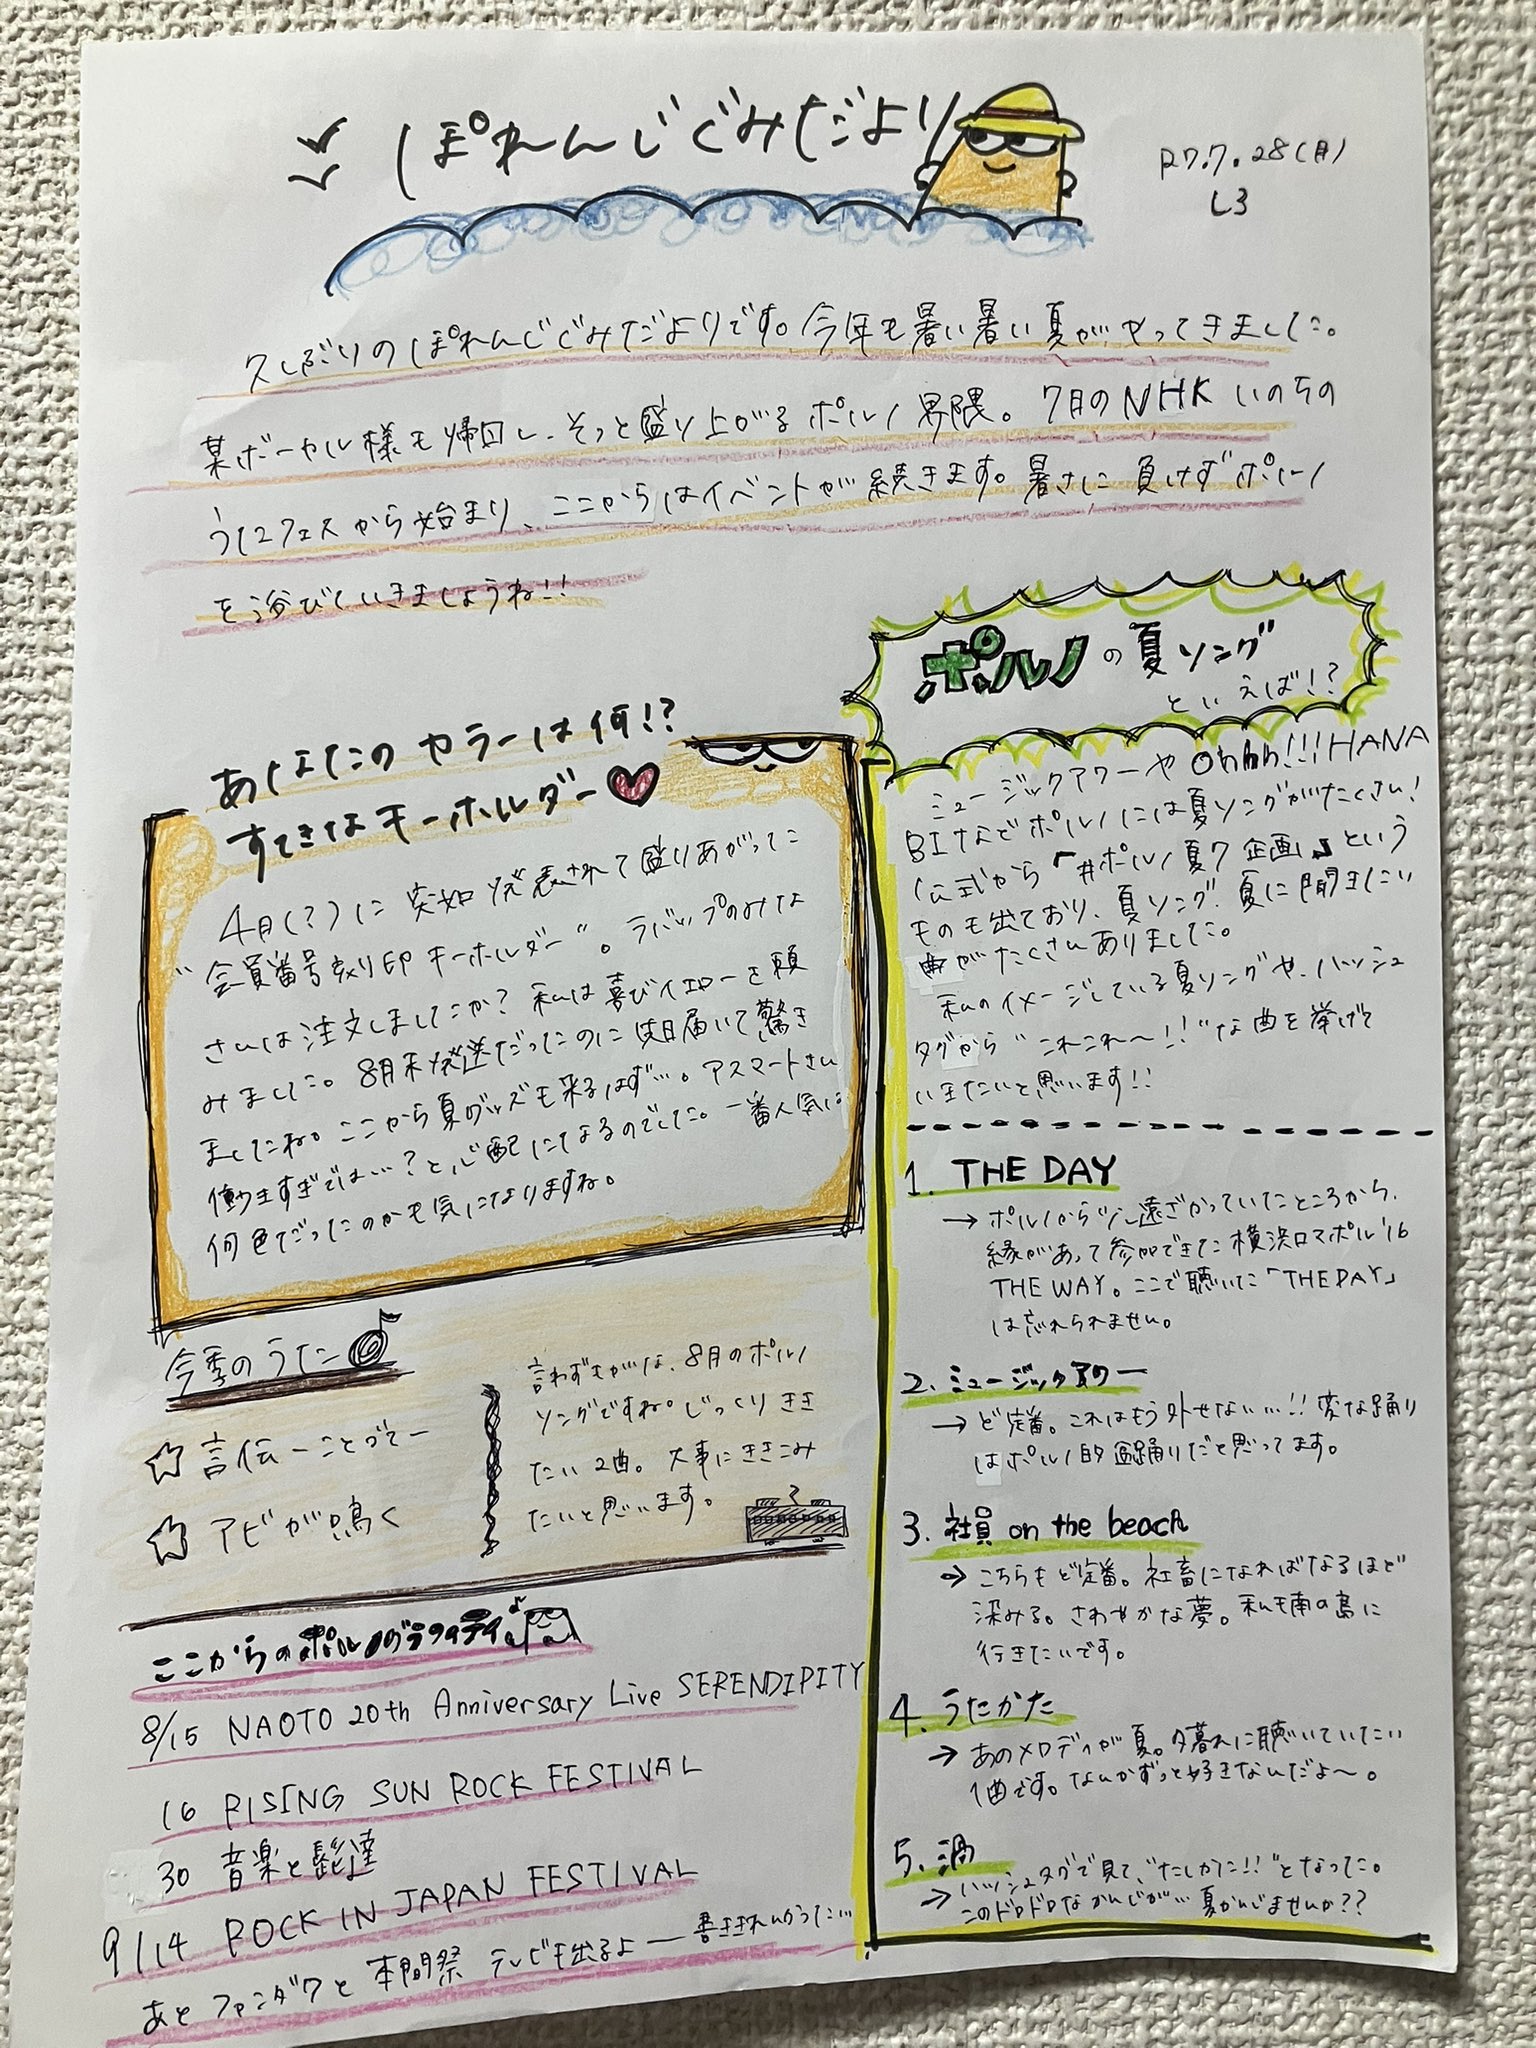 ぽれんじぐみだより
R7.7.28(月)
し3
久しぶりのぽれんじぐみだよりです。今年も暑い暑い夏がやってきました。
某ボーカル様も帰国し、そっと盛り上がるポルノ界隈。7月のNHKいのちの
うたフェスから始まり、ここからはイベントが続きます。暑さに負けずポルノ
を浴びていきましょうね!!
あなたのカラーは何!?
すてきなキーホルダー
4月(?)に突如発表されて盛りあがった
"会員番号刻印キーホルダー"。ラバップのみな
さんは注文しましたか?私は喜びイエローを頼
みました。8月末発送だったのに先日届いて驚き
ましたね。ここから夏グッズも来るはず…。アスマートさん
働きすぎでは…?と心配になるのでした。一番人気は
何色だったのかも気になりますね。
今季のうた
☆言伝ーことづてー
☆アビが鳴く
言わずもがな、8月のポルノ
ソングですね。じっくりきき
たい2曲。大事にききこみ
たいと思います。
ここからのポルノグラフィティ
8/15 NAOTO 20th Anniversary Live SERENDIPITY
16 RISING SUN ROCK FESTIVAL
30 音楽と髭達
9/14 ROCK IN JAPAN FESTIVAL
あと ファンダワと 本間祭 テレビも出るよ ― 書ききれんかった…
ポルノの夏ソング
といえば!?
ミュージックアワーやOhhh!!!HANA
BIなどポルノには夏ソングがたくさん!
公式から「#ポルノ夏フ企画」という
ものも出ており、夏ソング、夏に聞きたい
曲がたくさんありました。
私のイメージしている夏ソングや、ハッシュ
タグから"これこれ〜!!"な曲を挙げて
いきたいと思います!!
1. THE DAY
→ポルノから少し遠ざかっていたところから、
縁があって参加できた横浜ロマポル'16
THE WAY。ここで聴いた「THE DAY」
は忘れられません。
2. ミュージックアワー
→ど定番。これはもう外せない…!!変な踊り
はポルノ的盆踊りだと思ってます。
3. 社員 on the beach
→こちらもど定番。社畜になればなるほど
染みる。さわやかな夢。私も南の島に
行きたいです。
4. うたかた
→あのメロディが夏。夕暮れに聴いていたい
1曲です。なんかずっと好きなんだよ〜。
5. 渦
→ハッシュタグで見て、"たしかに!!"となった。
このドロドロなかんじが…夏かんじませんか??